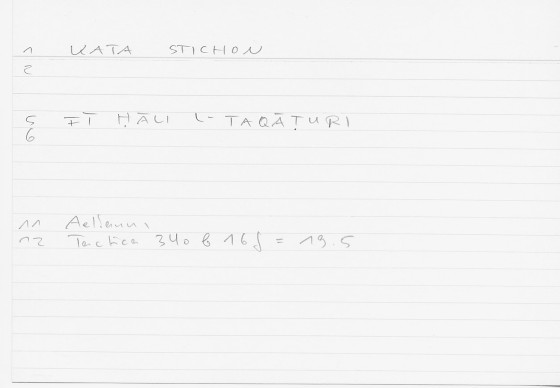 1 KATA STICHON
2
5 FĪ ḤĀLI L-TAQĀṬURI
6
11 Aelianus
12 Tactica 340 b 16 f = 19.5